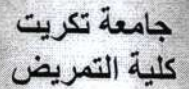 جامعة تكريت
كلية التمريض